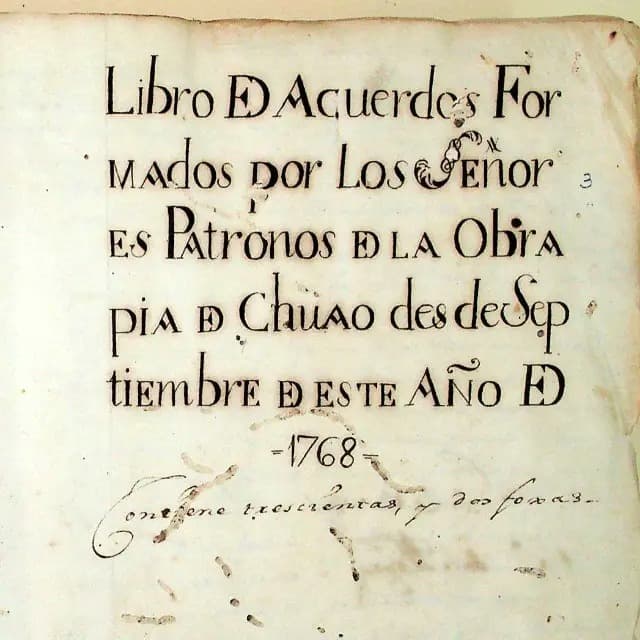 Libro DE Acuerdos For
mados por Los Señor
es Patronos DE la Obra
pia DE Chuao desde Sep
tiembre DE este Año DE
=1768=
Contiene trescientas, y dos foxas.
3